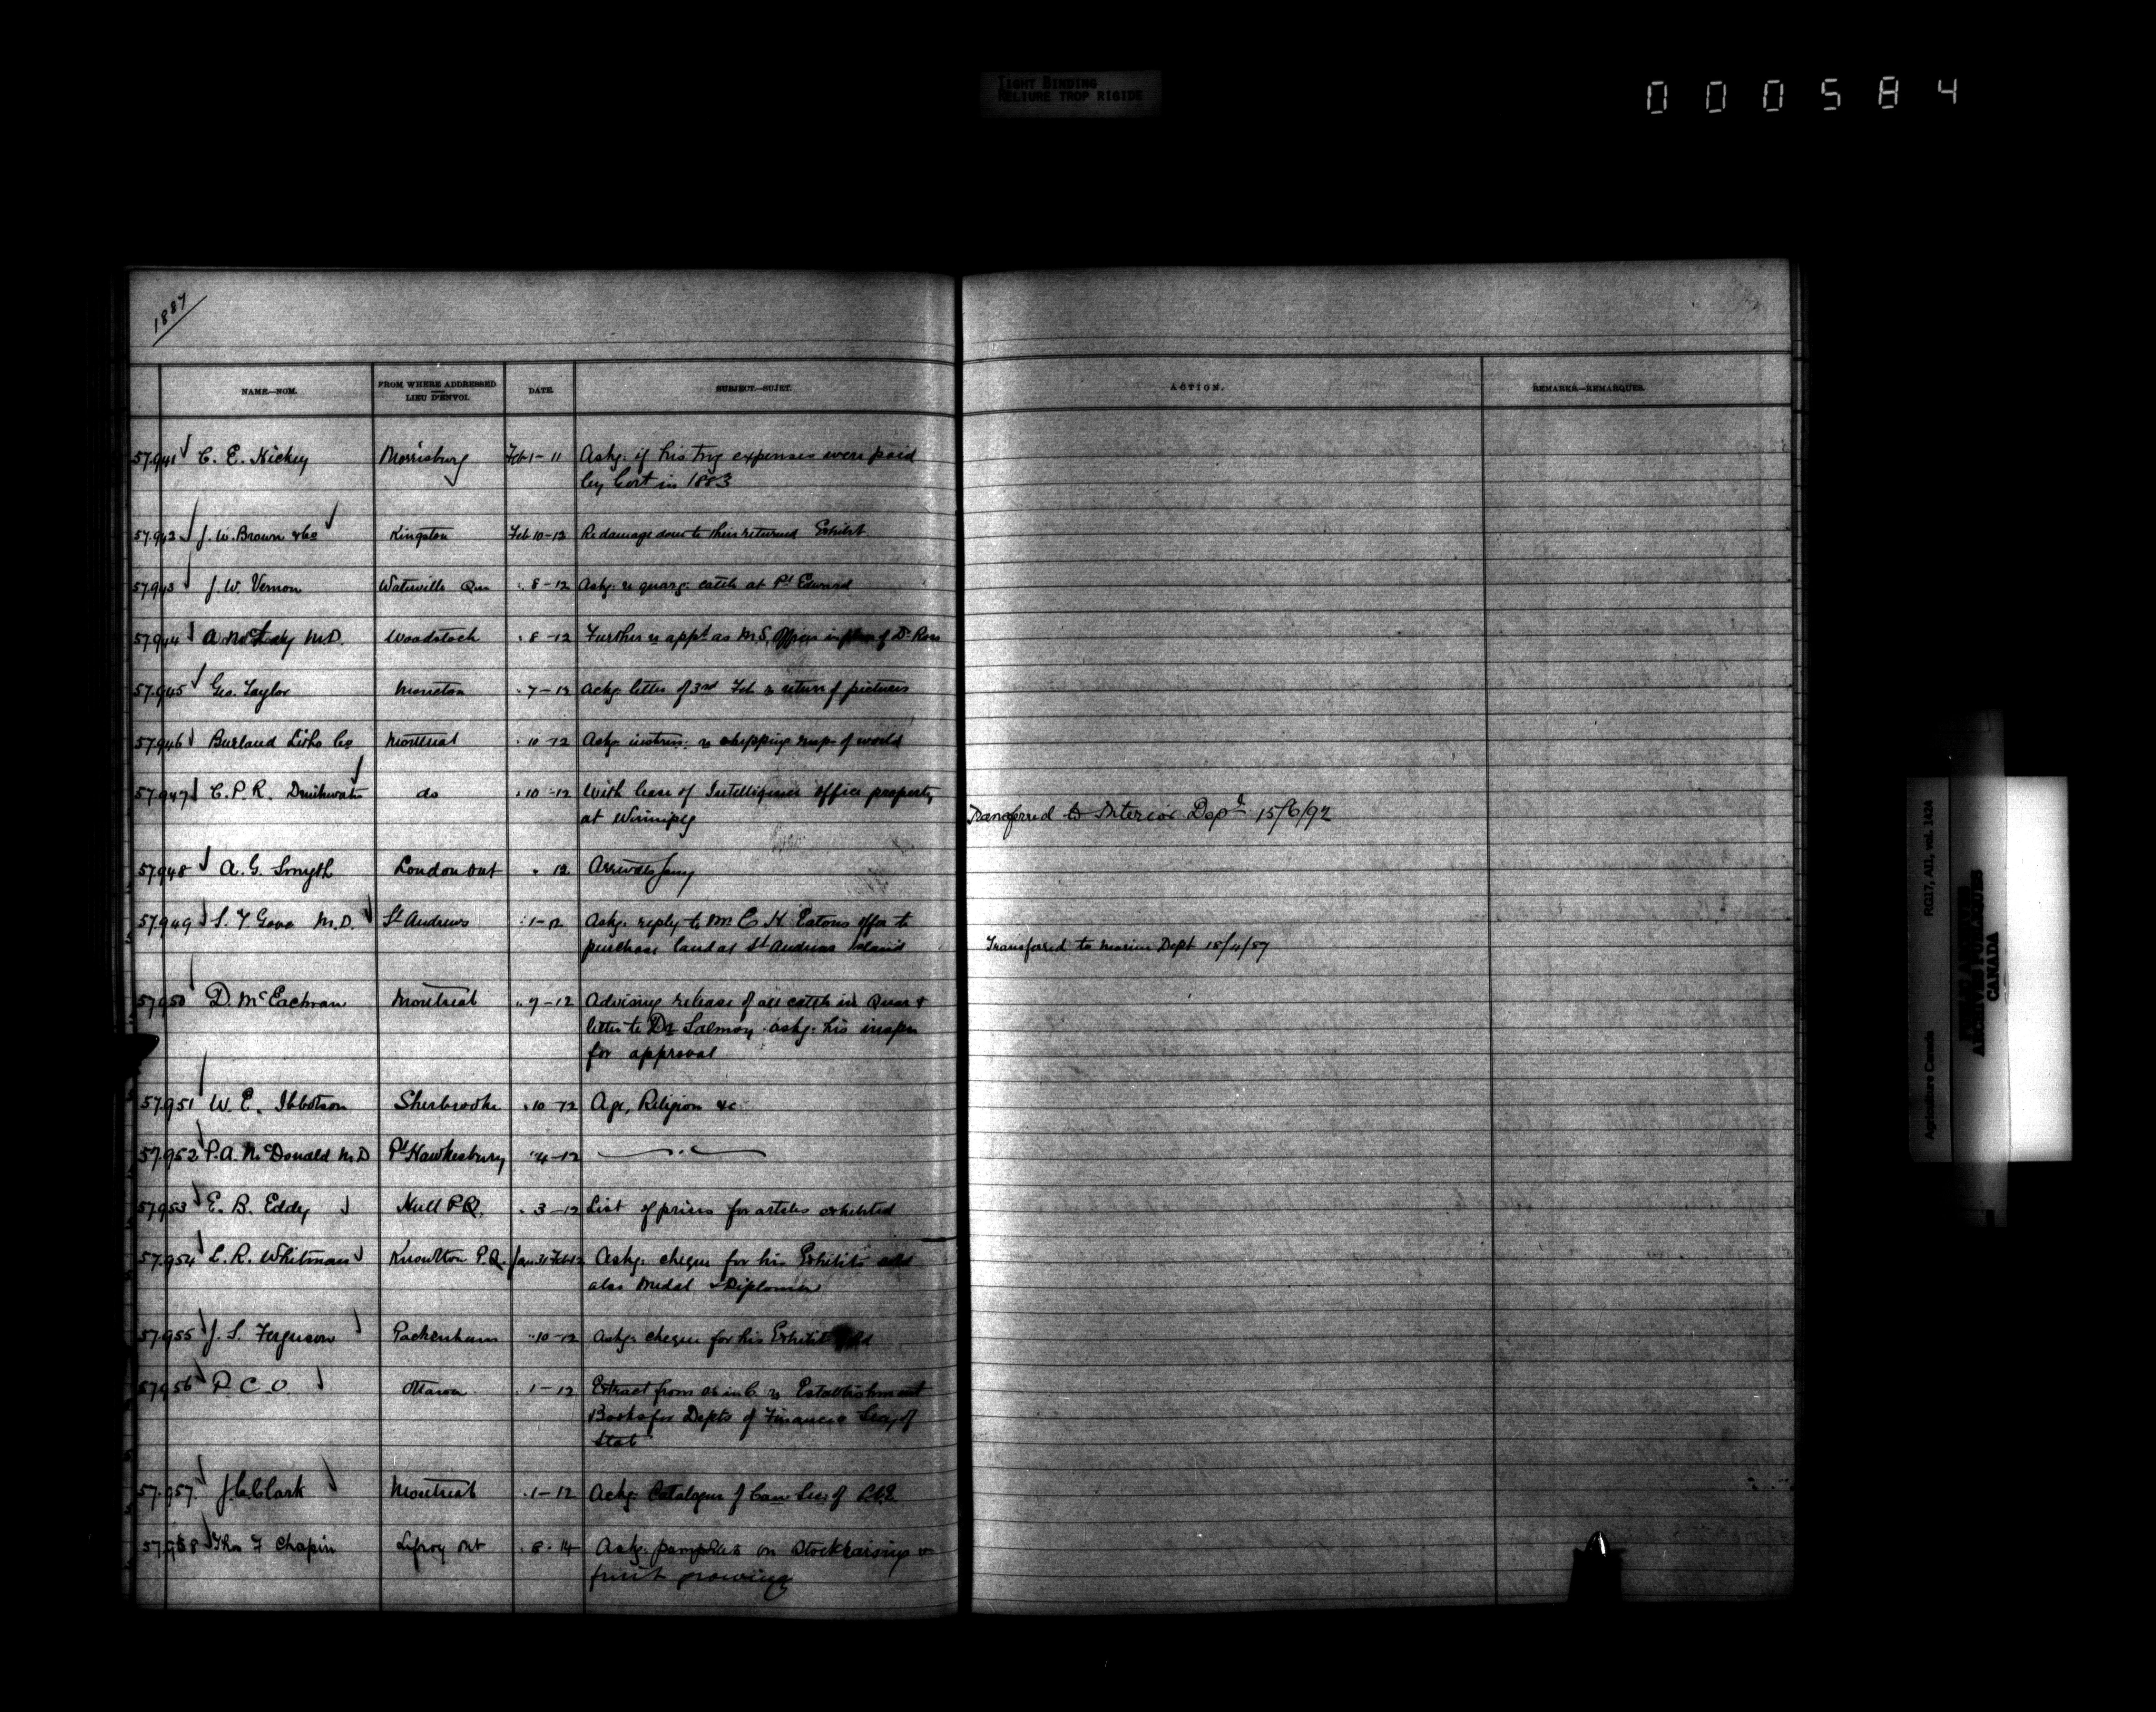 TIGHT BINDING
RELIURE TROP RIGIDE
000584
1887
NAME.—NOM. FROM WHERE ADDRESSED LIEU D'ENVOI. DATE. SUBJECT.—SUJET. ACTION. REMARKS.—REMARQUES.
57.941 C. E. Hickey Morrisburg Feb 1-11 Askg. if his trvg expenses were paid
by Govt in 1883
57.942 J. W. Brown & Co Kingston Feb 10-12 Re damage done to their returned Exhibit
57.943 J. W. Vernon Waterville Que " 8-12 Askg. re quarg. cattle at Pt Edward
57.944 M.D. Woodstock " 8-12 Further re appt as M.S. Officer in place of Dr Ross
57.945 Geo. Taylor Moncton " 7-12 Ackg. letter of 3rd Feb re return of pictures
57.946 Burland Litho Co Montreal " 10-12 Askg. instrns. re shipping map of world
57.947 C.P.R. Drinkwater do " 10-12 With lease of Intelligence office property
at Winnipeg
Transferred to Interior Dept 15/6/92
57.948 A. G. Smyth London Ont " 12 Arrivals Jany
57.949 S. T Gove M.D. St Andrews " 1-12 Askg. reply to Mr C H Eatons offer to
purchase land at St Andrews Island
Transferred to Marine Dept 15/11/87
57.950 D. McEachran Montreal " 9-12 Advising release of all cattle in Quar &
letter to Dr Salmon askg. his inspn
for approval
57.951 W. E. Ibbotson Sherbrooke " 10-12 Age, Religion &c
57.952 P. A. McDonald M.D Pt Hawkesbury " 4-12 "
57.953 E. B. Eddy Hull P.Q. " 3-12 List of prices for articles exhibited
57.954 L. R. Whitman Knowlton P.Q. Jan 31 Feb 12 Askg. cheque for his Exhibits sold
also Medal & Diploma
57.955 J. S. Ferguson Packenham " 10-12 Askg. cheque for his Exhibit sold
57.956 P C O Ottawa " 1-12 Extract from re Establishment
Books for Depts of Finance & Secy of
State
57.957 J. C. Clark Montreal " 1-12 Ackg. Catalogue of Can Sec. of
57.958 Thos F Chapin Lefroy Ont " 8-14 Askg. pamphlets on Stockraising &
fruit growing
Agriculture Canada RG17, AI1, vol. 1424
PUBLIC ARCHIVES
ARCHIVES PUBLIQUES
CANADA